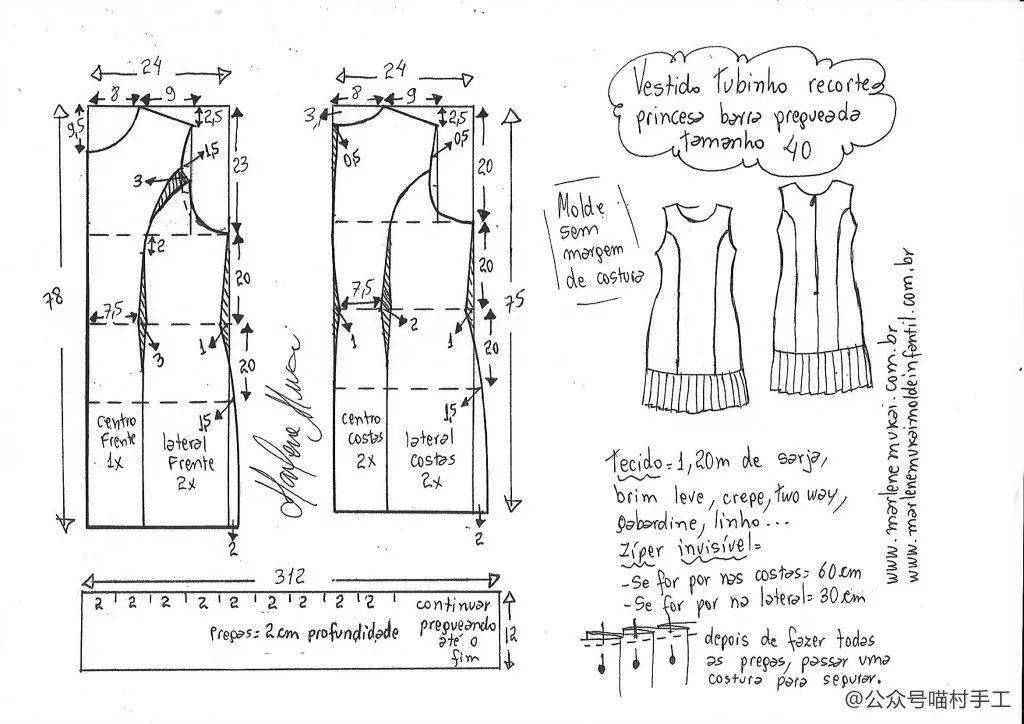 24
8 9
9,5
2,5
1,5
3
23
2
20
7,5
3
1
20
78
1,5
centro
Frente
1x
lateral
Frente
2x
2
24
8 9
3
2,5
0,5
0,5
20
20
7,5
1
2
1
20
75
1,5
centro
costas
2x
lateral
costas
2x
2
Vestido Tubinho recorte
princesa barra pregueada
tamanho 40
Molde
sem
margem
de costura
www.marlenemukai.com.br
www.marlenemukaimoldeinfantil.com.br
tecido=1,20m de sarja,
brim leve, crepe, two way,
gabardine, linho...
Zíper invisível=
-Se for por nas costas= 60cm
-Se for por na lateral= 30cm
312
2 2 2 2 2 2 2 2 2
continuar
pregueando
até o
fim
Pregas= 2cm profundidade
12
depois de fazer todas
as pregas, passar uma
costura para segurar.
Marlene Mukai
@公众号喵村手工